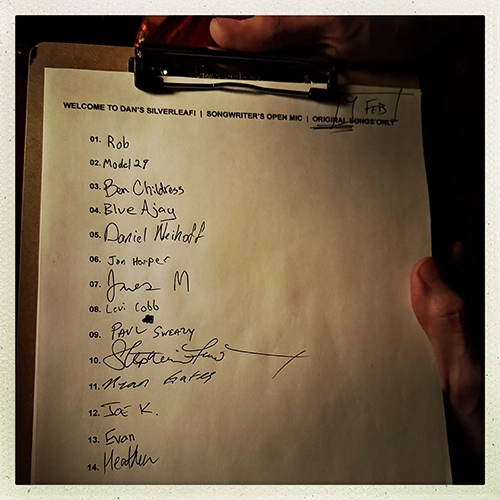 WELCOME TO DAN'S SILVERLEAF! | SONGWRITER'S OPEN MIC | ORIGINAL SONGS ONLY
FEB
01. Rob
02. Model 29
03. Ben Childress
04. Blue Ajay
05. Daniel
06. Jon Harper
07. James M
08. Levi Cobb
09. PAUL SWEAZY
10.
11. Ryan Gates
12. JOE K.
13. Evan
14. Heather